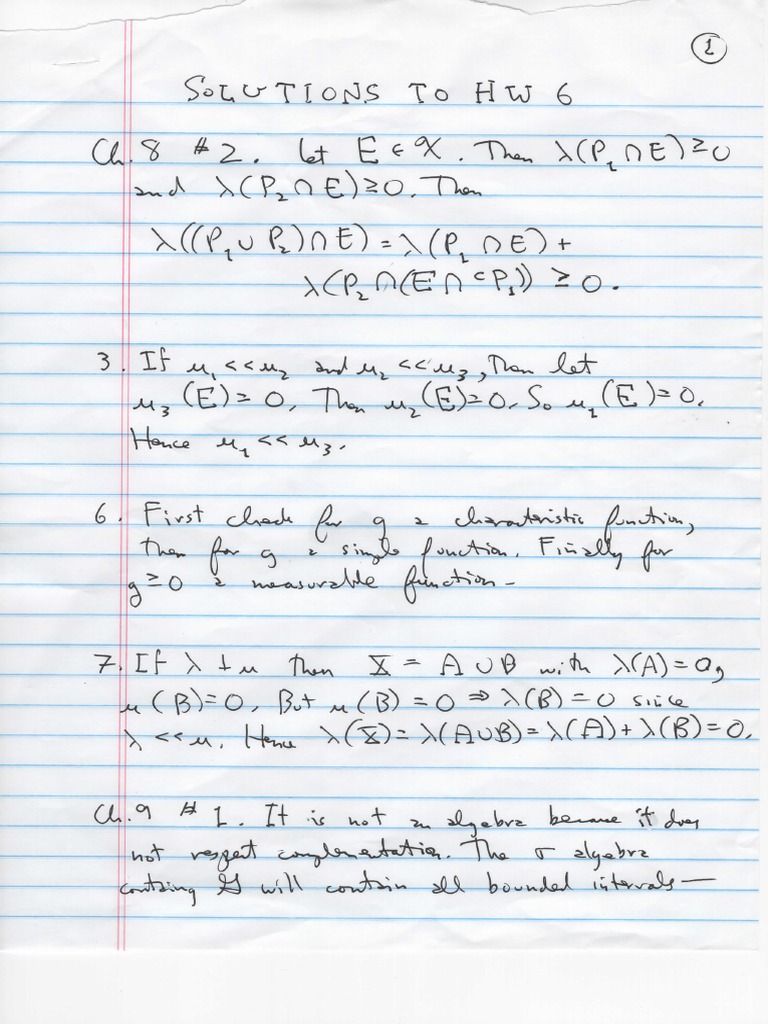 1
SOLUTIONS TO HW 6
Ch. 8 # 2. Let E ∈ X. Then λ(P₁ ∩ E) ≥ 0
and λ(P₂ ∩ E) ≥ 0. Then
λ((P₁ ∪ P₂) ∩ E) = λ(P₁ ∩ E) +
λ(P₂ ∩ (E ∩ ᶜP₁)) ≥ 0.
3. If μ₁ << μ₂ and μ₂ << μ₃, Then let
μ₃(E) = 0, Then μ₂(E) = 0. So μ₁(E) = 0.
Hence μ₁ << μ₃.
6. First check for g a characteristic function,
then for g a simple function. Finally for
g ≥ 0 a measurable function —
7. If λ ⊥ μ then X = A ∪ B with λ(A) = 0,
μ(B) = 0, But μ(B) = 0 ⇒ λ(B) = 0 since
λ << μ. Hence λ(X) = λ(A∪B) = λ(A) + λ(B) = 0.
Ch. 9 # 1. It is not an algebra because it does
not respect complementation. The σ algebra
containg will contain all bounded intervals —